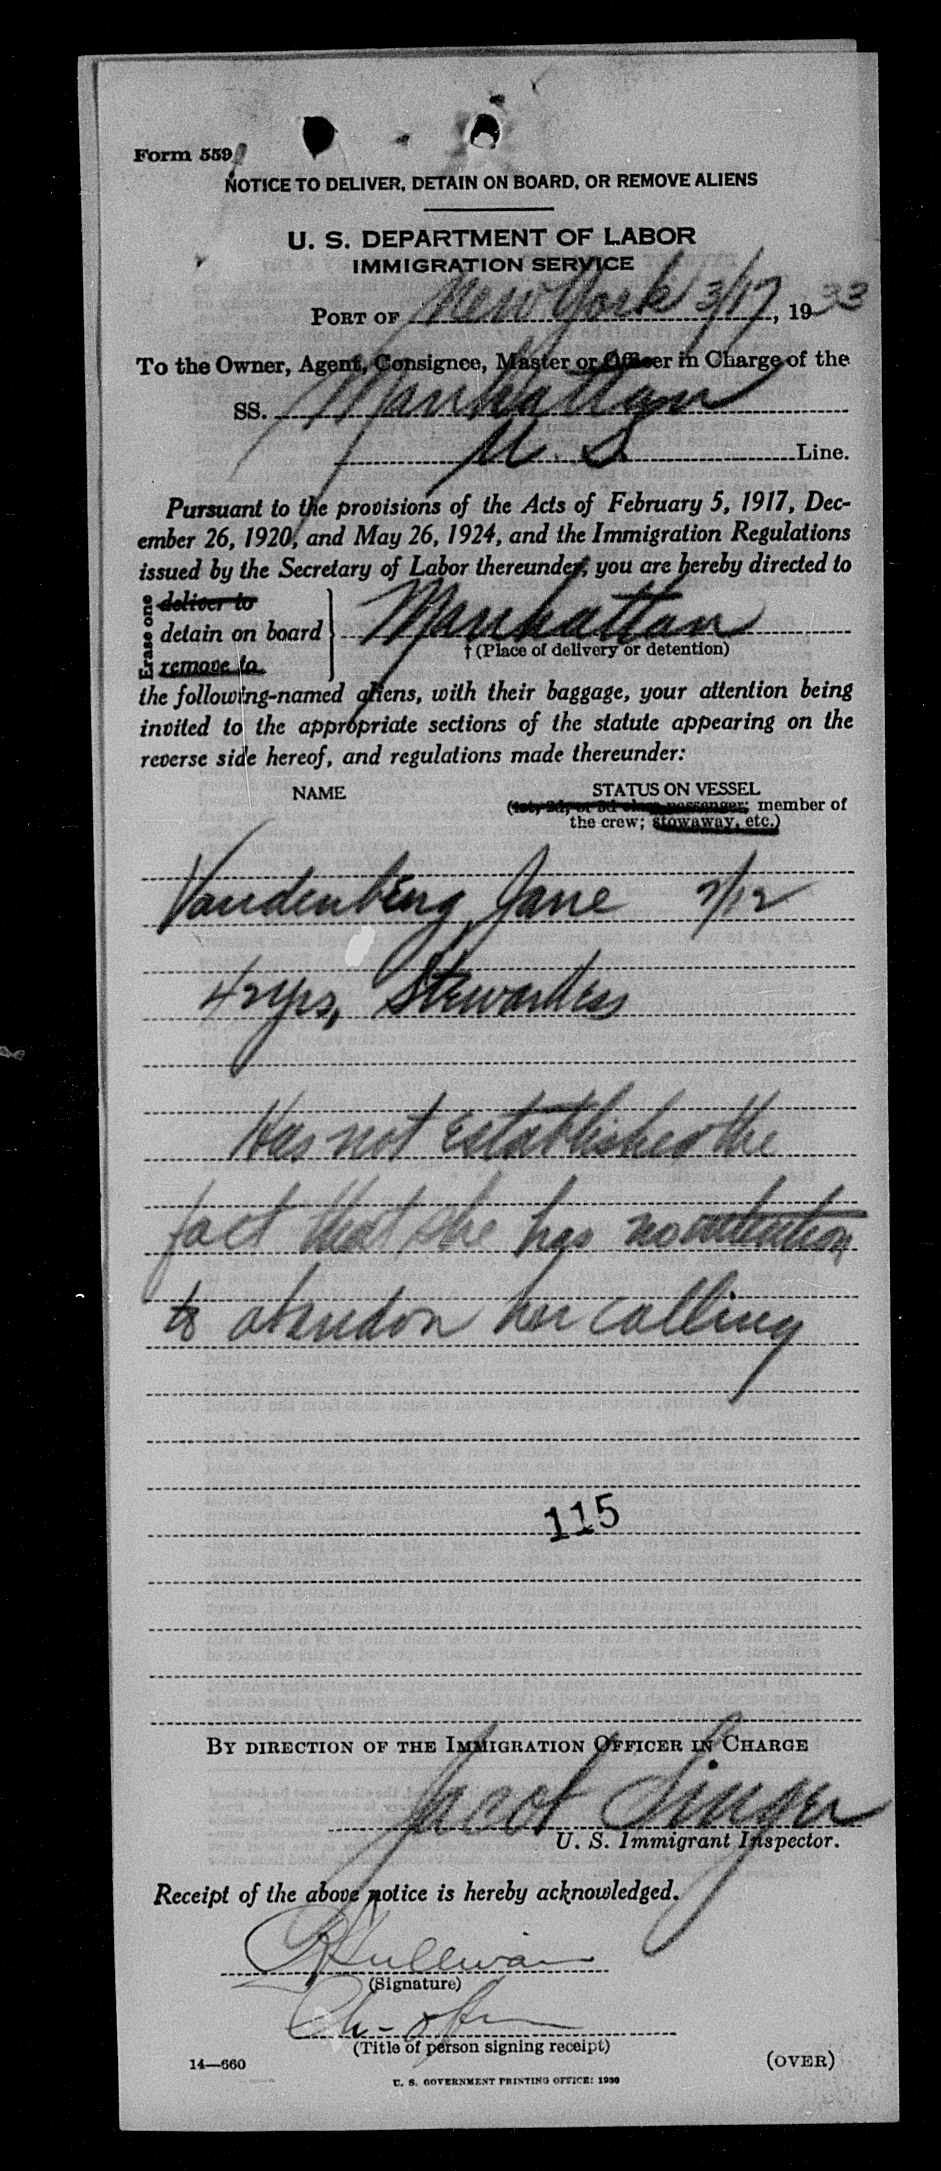 Form 559
NOTICE TO DELIVER, DETAIN ON BOARD, OR REMOVE ALIENS
U. S. DEPARTMENT OF LABOR
IMMIGRATION SERVICE
PORT OF New York 3/17, 1933
To the Owner, Agent, Consignee, Master or Officer in Charge of the
SS. Manhattan
U. S. Line.
Pursuant to the provisions of the Acts of February 5, 1917, Dec-
ember 26, 1920, and May 26, 1924, and the Immigration Regulations
issued by the Secretary of Labor thereunder, you are hereby directed to
Erase one
deliver to
detain on board
remove to
Manhattan
† (Place of delivery or detention)
the following-named aliens, with their baggage, your attention being
invited to the appropriate sections of the statute appearing on the
reverse side hereof, and regulations made thereunder:
NAME
STATUS ON VESSEL
(1st, 2d, or 3d class passenger; member of
the crew; stowaway, etc.)
Vandenberg, Jane 7/12
42 yrs, Stewardess
Has not established the
fact that she has no intention
to abandon her calling
115
BY DIRECTION OF THE IMMIGRATION OFFICER IN CHARGE
Jacob Singer
U. S. Immigrant Inspector.
Receipt of the above notice is hereby acknowledged.
(Signature)
Ch. Ofr
(Title of person signing receipt)
14—660
(OVER)
U. S. GOVERNMENT PRINTING OFFICE: 1930